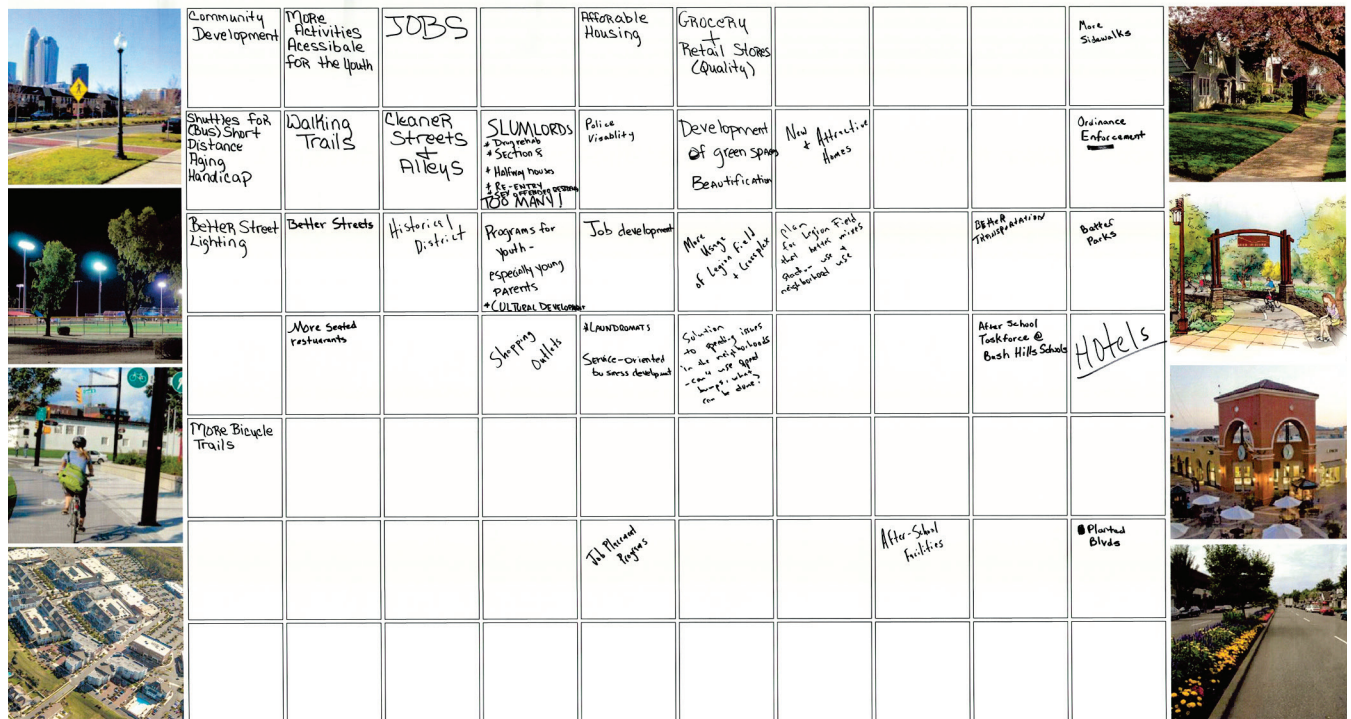 Community
Development
More
Activities
Acessibale
for the youth
JOBS
Affordable
Housing
Grocery
+
Retail Stores
(Quality)
More
Sidewalks
Shuttles for
(Bus) Short
Distance
Aging
Handicap
Walking
Trails
Cleaner
Streets
+
Alleys
SLUMLORDS
* Drug rehab
* Section 8
* Halfway houses
* RE-ENTRY
* SEX OFFENDER
TOO MANY!
Police
Visablity
Development
of green spaces
Beautification
New
+ Attractive
Homes
Ordinance
Enforcement
Better Street
Lighting
Better Streets
Historical
District
Programs for
youth -
especially young
parents
* CULTURAL DEVELOPMENT
Job development
More
Usage
of Legion Field
+ Crossplex
plan
for Legion Field
that better mixes
use +
neighborhood use
Better
Transportation
Better
Parks
More Seated
restuerants
Shopping
Outlets
*LAUNDROMATS
Service-oriented
business development
Solution
to speeding issues
in the neighborhoods
- can u use speed
bumps, what
can be done?
After School
Taskforce @
Bush Hills Schools
Hotels
More Bicycle
Trails
Job Placement
Programs
After-School
Facilities
Planted
Blvds